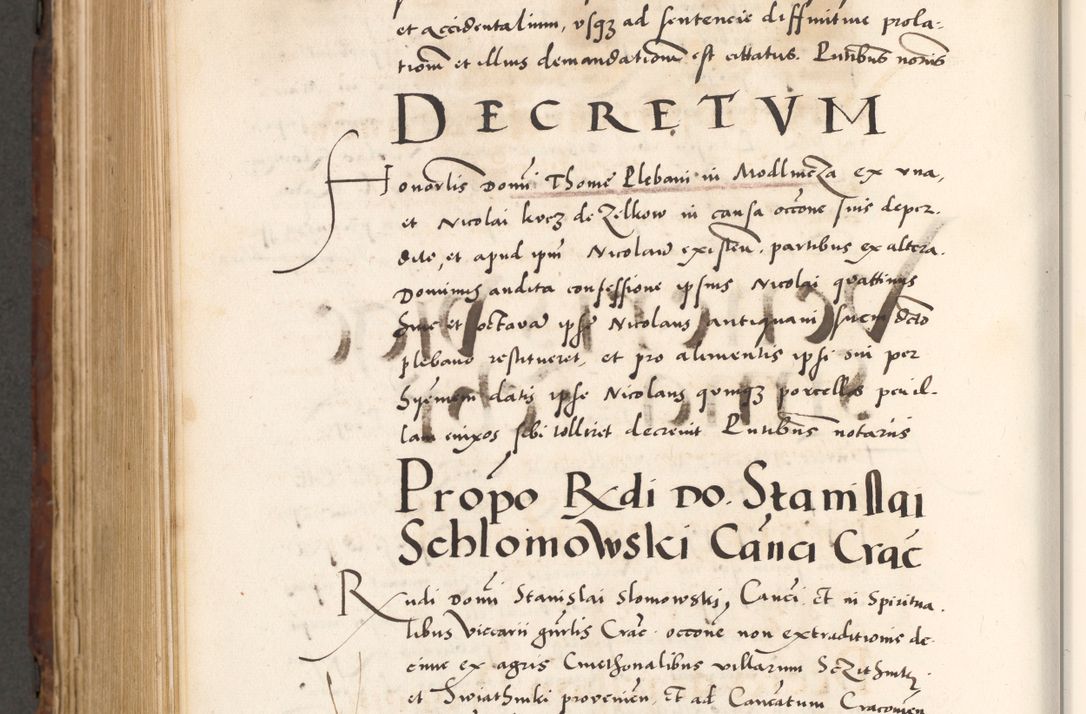 et accidentalium, vsqꝫ ad sentencie diffinitiue prola-
tionem et illius demandationem est citatus. Pntibus notriis
DECRETVM
Honorlis Domi Thome Plebani in Modlnicza ex vna,
et Nicolai kucz de Zelkow in causa occone suis deper-
dite, et apud ipm Nicolaum existen. partibus ex altera.
Dominus audita confessione ipsius Nicolai quattinus
sue et octaua ipse Nicolaus antiquam suem dcto
plebano restitueret, et pro alimentis ipsi sui per
hyemem datis ipse Nicolaus quinqꝫ porcellos per il-
lam enixos sibi tolleret decreuit Pntibus notariis
Propo Rdi Do. Stanislai
Schlomowski Canci Crac
Rndi Domi Stanislai Slomowski, Canci. et in Spiritua.
libus Viccarii gnrlis Crac. occone non extraditionis de-
cime ex agris Cmethonalibus villarum
et Swiathniki prouenien, et ad Cancatum Cracouien